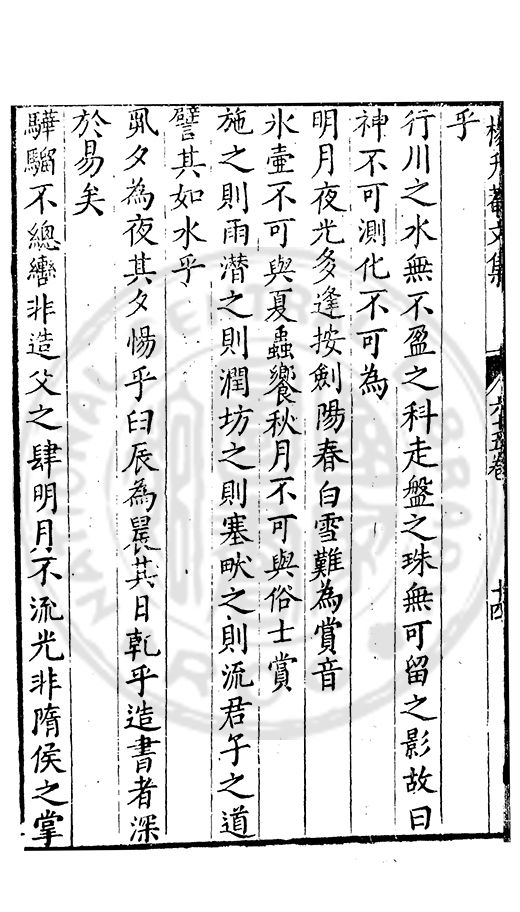 楊升菴文集 六十五卷 十四
乎
行川之水無不盈之科走盤之珠無可留之影故曰
神不可測化不可為
明月夜光多逢按劍陽春白雪難為賞音
氷壷不可與夏蟲饗秋月不可與俗士賞
施之則雨潜之則潤坊之則塞畎之則流君子之道
譬其如水乎
夙夕為夜其夕惕乎臼辰為晨其日乾乎造書者深
於易矣
驊騮不總轡非造父之肆明月不流光非隋侯之掌